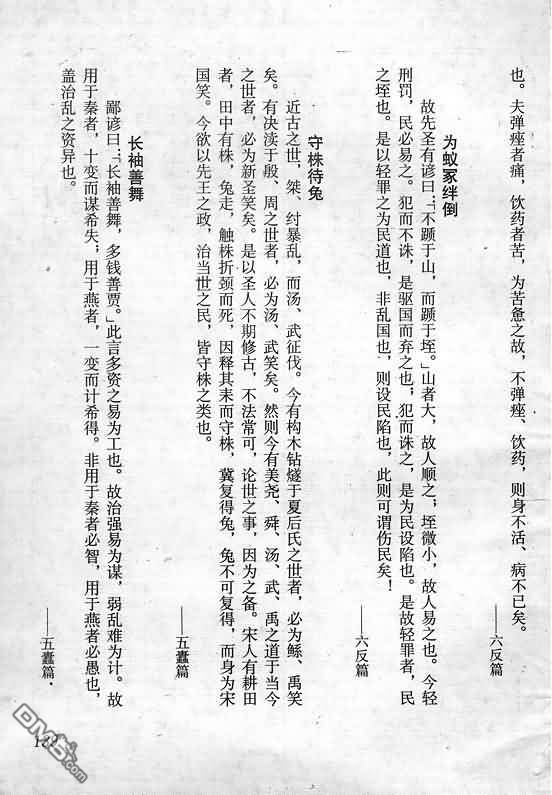 也。夫弹痤者痛，饮药者苦，为苦惫之故，不弹痤、饮药，则身不活、病不已矣。
——六反篇
为蚁冢绊倒
故先圣有谚曰：「不踬于山，而踬于垤。」山者大，故人顺之；垤微小，故人易之也。今轻
刑罚，民必易之。犯而不诛，是驱国而弃之也；犯而诛之，是为民设陷也。是故轻罪者，民
之垤也。是以轻罪之为民道也，非乱国也，则设民陷也，此则可谓伤民矣！
——六反篇
守株待兔
近古之世，桀、纣暴乱，而汤、武征伐。今有构木钻燧于夏后氏之世者，必为鲧、禹笑
矣。有决渎于殷、周之世者，必为汤、武笑矣。然则今有美尧、舜、汤、武、禹之道于当今
之世者，必为新圣笑矣。是以圣人不期修古，不法常可，论世之事，因为之备。宋人有耕田
者，田中有株，兔走，触株折颈而死，因释其耒而守株，冀复得兔，兔不可复得，而身为宋
国笑。今欲以先王之政，治当世之民，皆守株之类也。
——五蠹篇
长袖善舞
鄙谚曰：「长袖善舞，多钱善贾。」此言多资之易为工也。故治强易为谋，弱乱难为计。故
用于秦者，十变而谋希失；用于燕者，一变而计希得。非用于秦者必智，用于燕者必愚也，
盖治乱之资异也。
——五蠹篇·